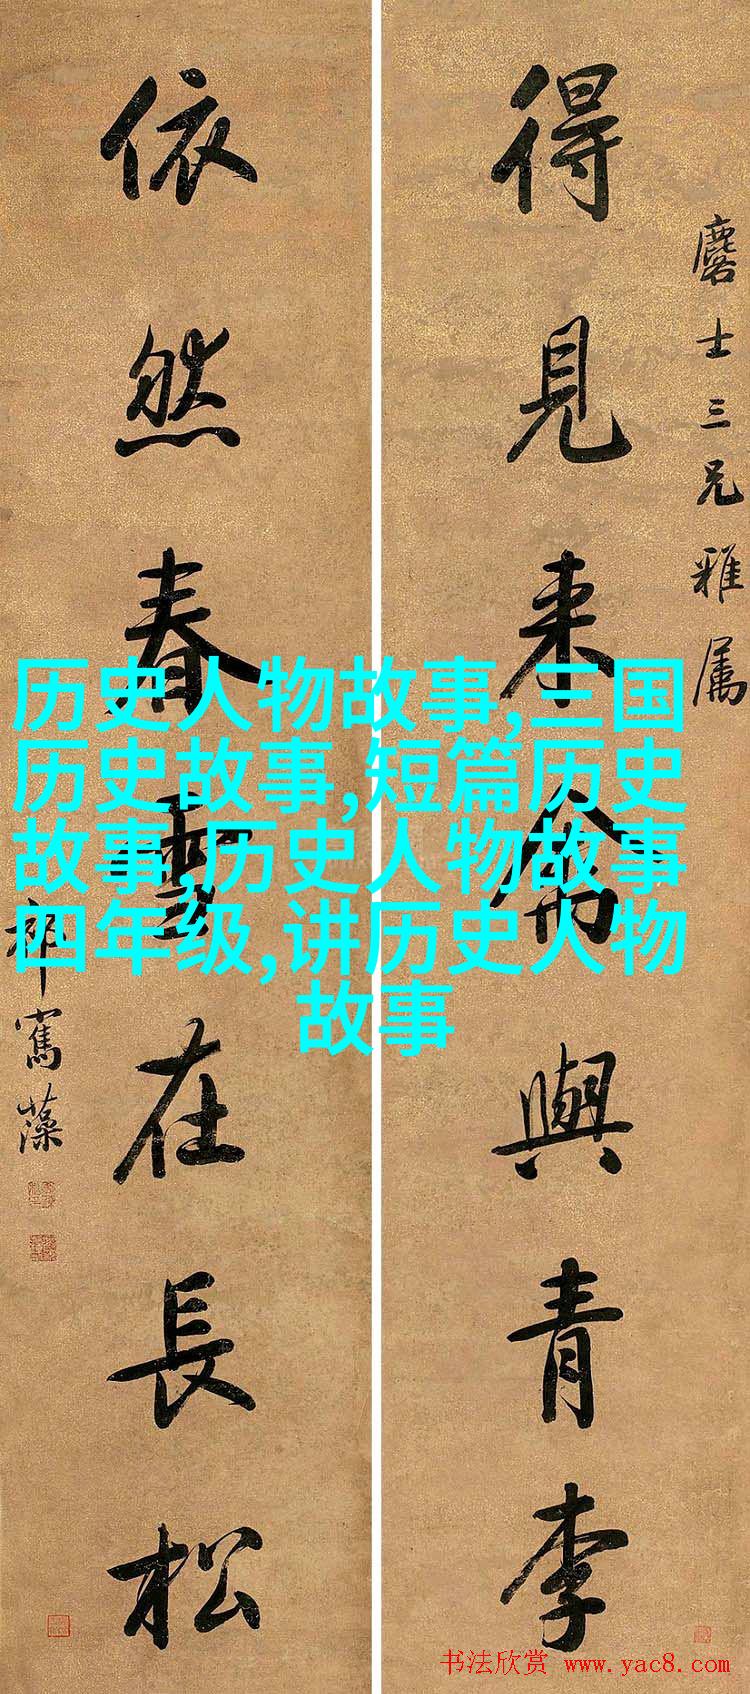 麐士三兄雅属
得見来禽與青李
依然春雪在長松
祁寯藻
历史人物故事,三国
历史故事,短篇历史
故事,历史人物故事
四年级,讲历史人物
故事
书法欣赏 www.yac8.com